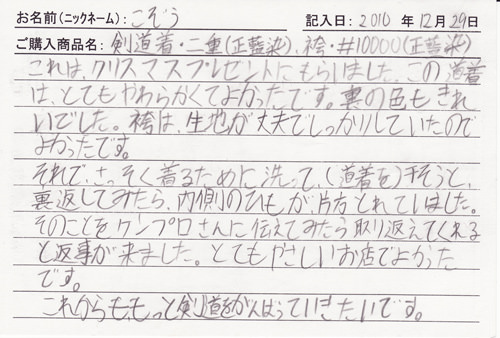 お名前(ニックネーム):こぞう 記入日:2010年12月29日
ご購入商品名:剣道着・二重(正藍染)、袴・#10000(正藍染)
これは、クリスマスプレゼントにもらいました。この道着
は、とてもやわらかくてよかったです。裏の色もきれ
いでした。袴は、生地が丈夫でしっかりしていたので
よかったです。
それで、さっそく着るために洗って、(道着を)干そうと、
裏返してみたら、内側のひもが片方とれていました。
そのことをケンプロさんに伝えてみたら取り返えてくれる
と返事が来ました。とてもやさしいお店でよかった
です。
これからも、もっと剣道をがんばっていきたいです。